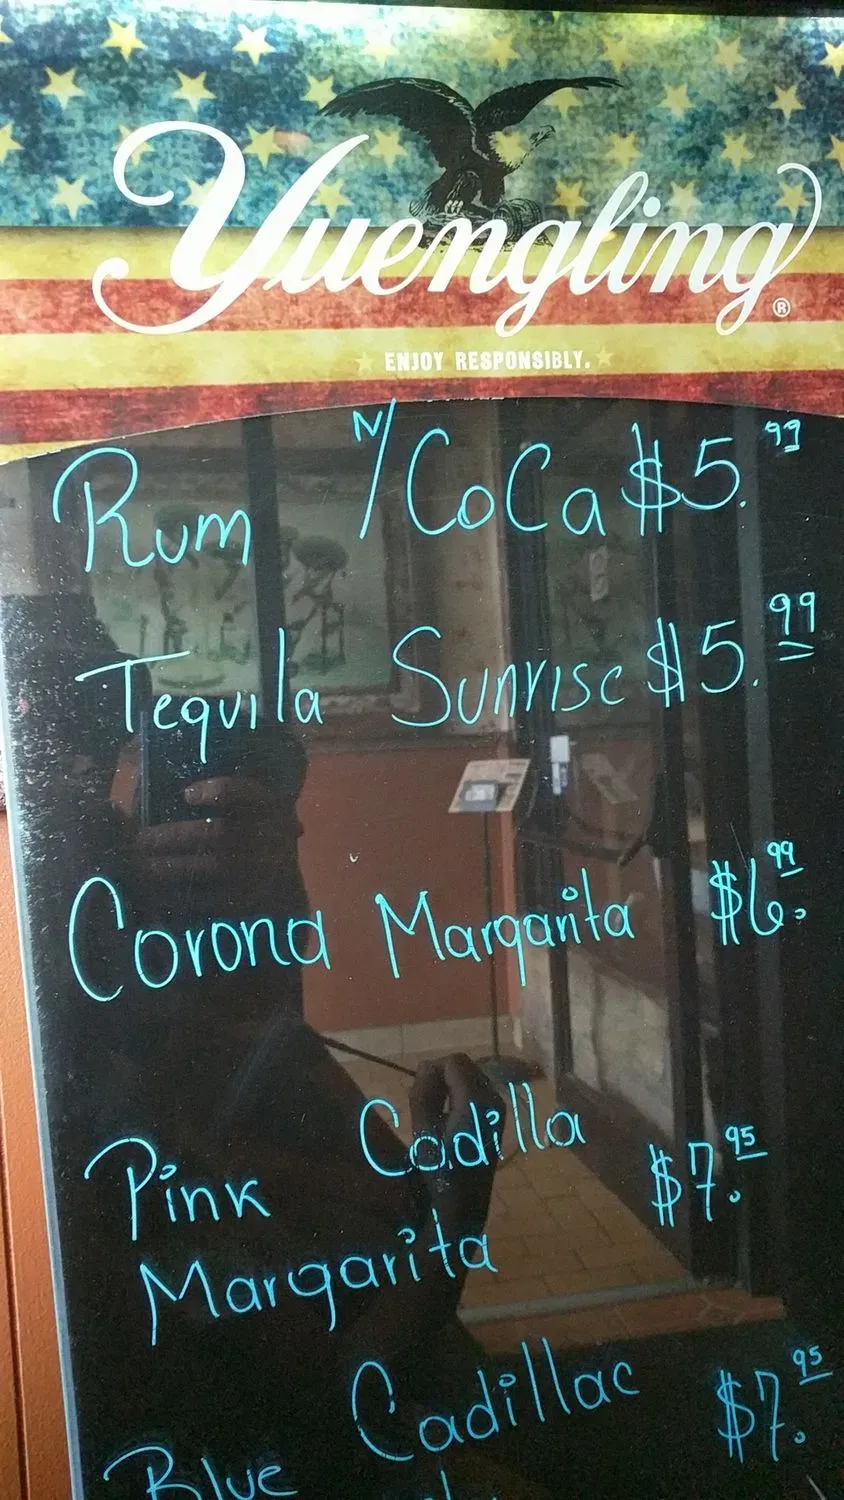 Yuengling®
ENJOY RESPONSIBLY.
Rum N/CoCa $5.99
Tequila Sunrise $5.99
Corona Margarita $6.99
Pink Cadilla $7.95
Margarita
Blue Cadillac $7.95